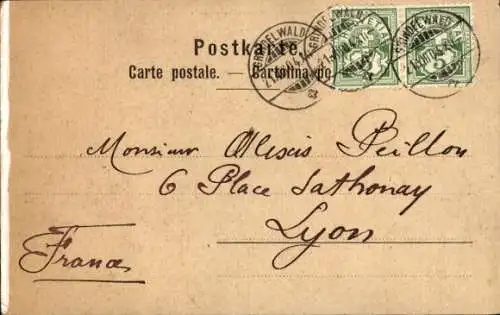 Postkarte.
Carte postale. — Cartolina po
GRINDELWALD
GRINDELWALD
GRINDELWALD
5
Monsieur Alexis Peillon
6 Place Sathonay
Lyon
France